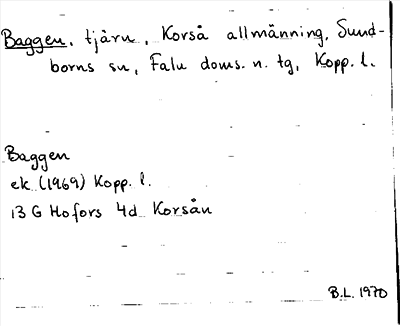 Baggen, tjärn, Korså allmänning, Sund-
borns sn, Falu doms. n. tg, Kopp. l.
Baggen
ek (1969) Kopp. l.
13 G Hofors 4d Korsån
B.L. 1970